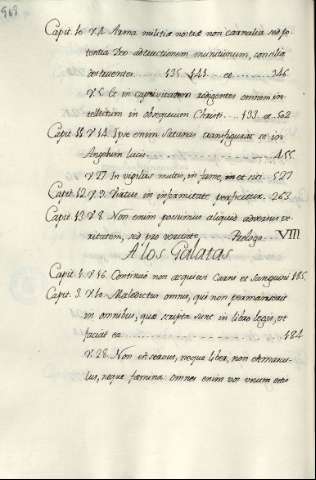 Capit. 10. V. 4. Arma militiæ nostræ non carnalia sed po-
tentia Deo ad destructionem munitionum, consilia
destruentes . . . 135. 141. et . . . 346
V. 5. Et in captivitatem redigentes omnem in-
tellectum in obsequium Christi . . . 133. et . 502
Capit. 11. V. 14. Ipse enim Satanas transfigurat se in
Angelum lucis . . . 455.
V. 27. In vigiliis multis, in fame, et siti . 527
Capit. 12. V. 9. Virtus in infirmitate perficitur. 263.
Capit. 13. V. 8. Non enim possumus aliquid adversus ve-
ritatem, sed pro veritate. Prologo. VIII
A los Galatas
Capit. 1. V. 16. Continuò non acquievi Carni et Sanguini 185.
Capit. 3. V. 10. Maledictus omnis, qui non permanserit
in omnibus, quæ scripta sunt in libro legis, ut
faciat ea . . . 484
V. 28. Non est servus, neque liber, non est mascu-
lus, neque fæmina: omnes enim vos unum estis